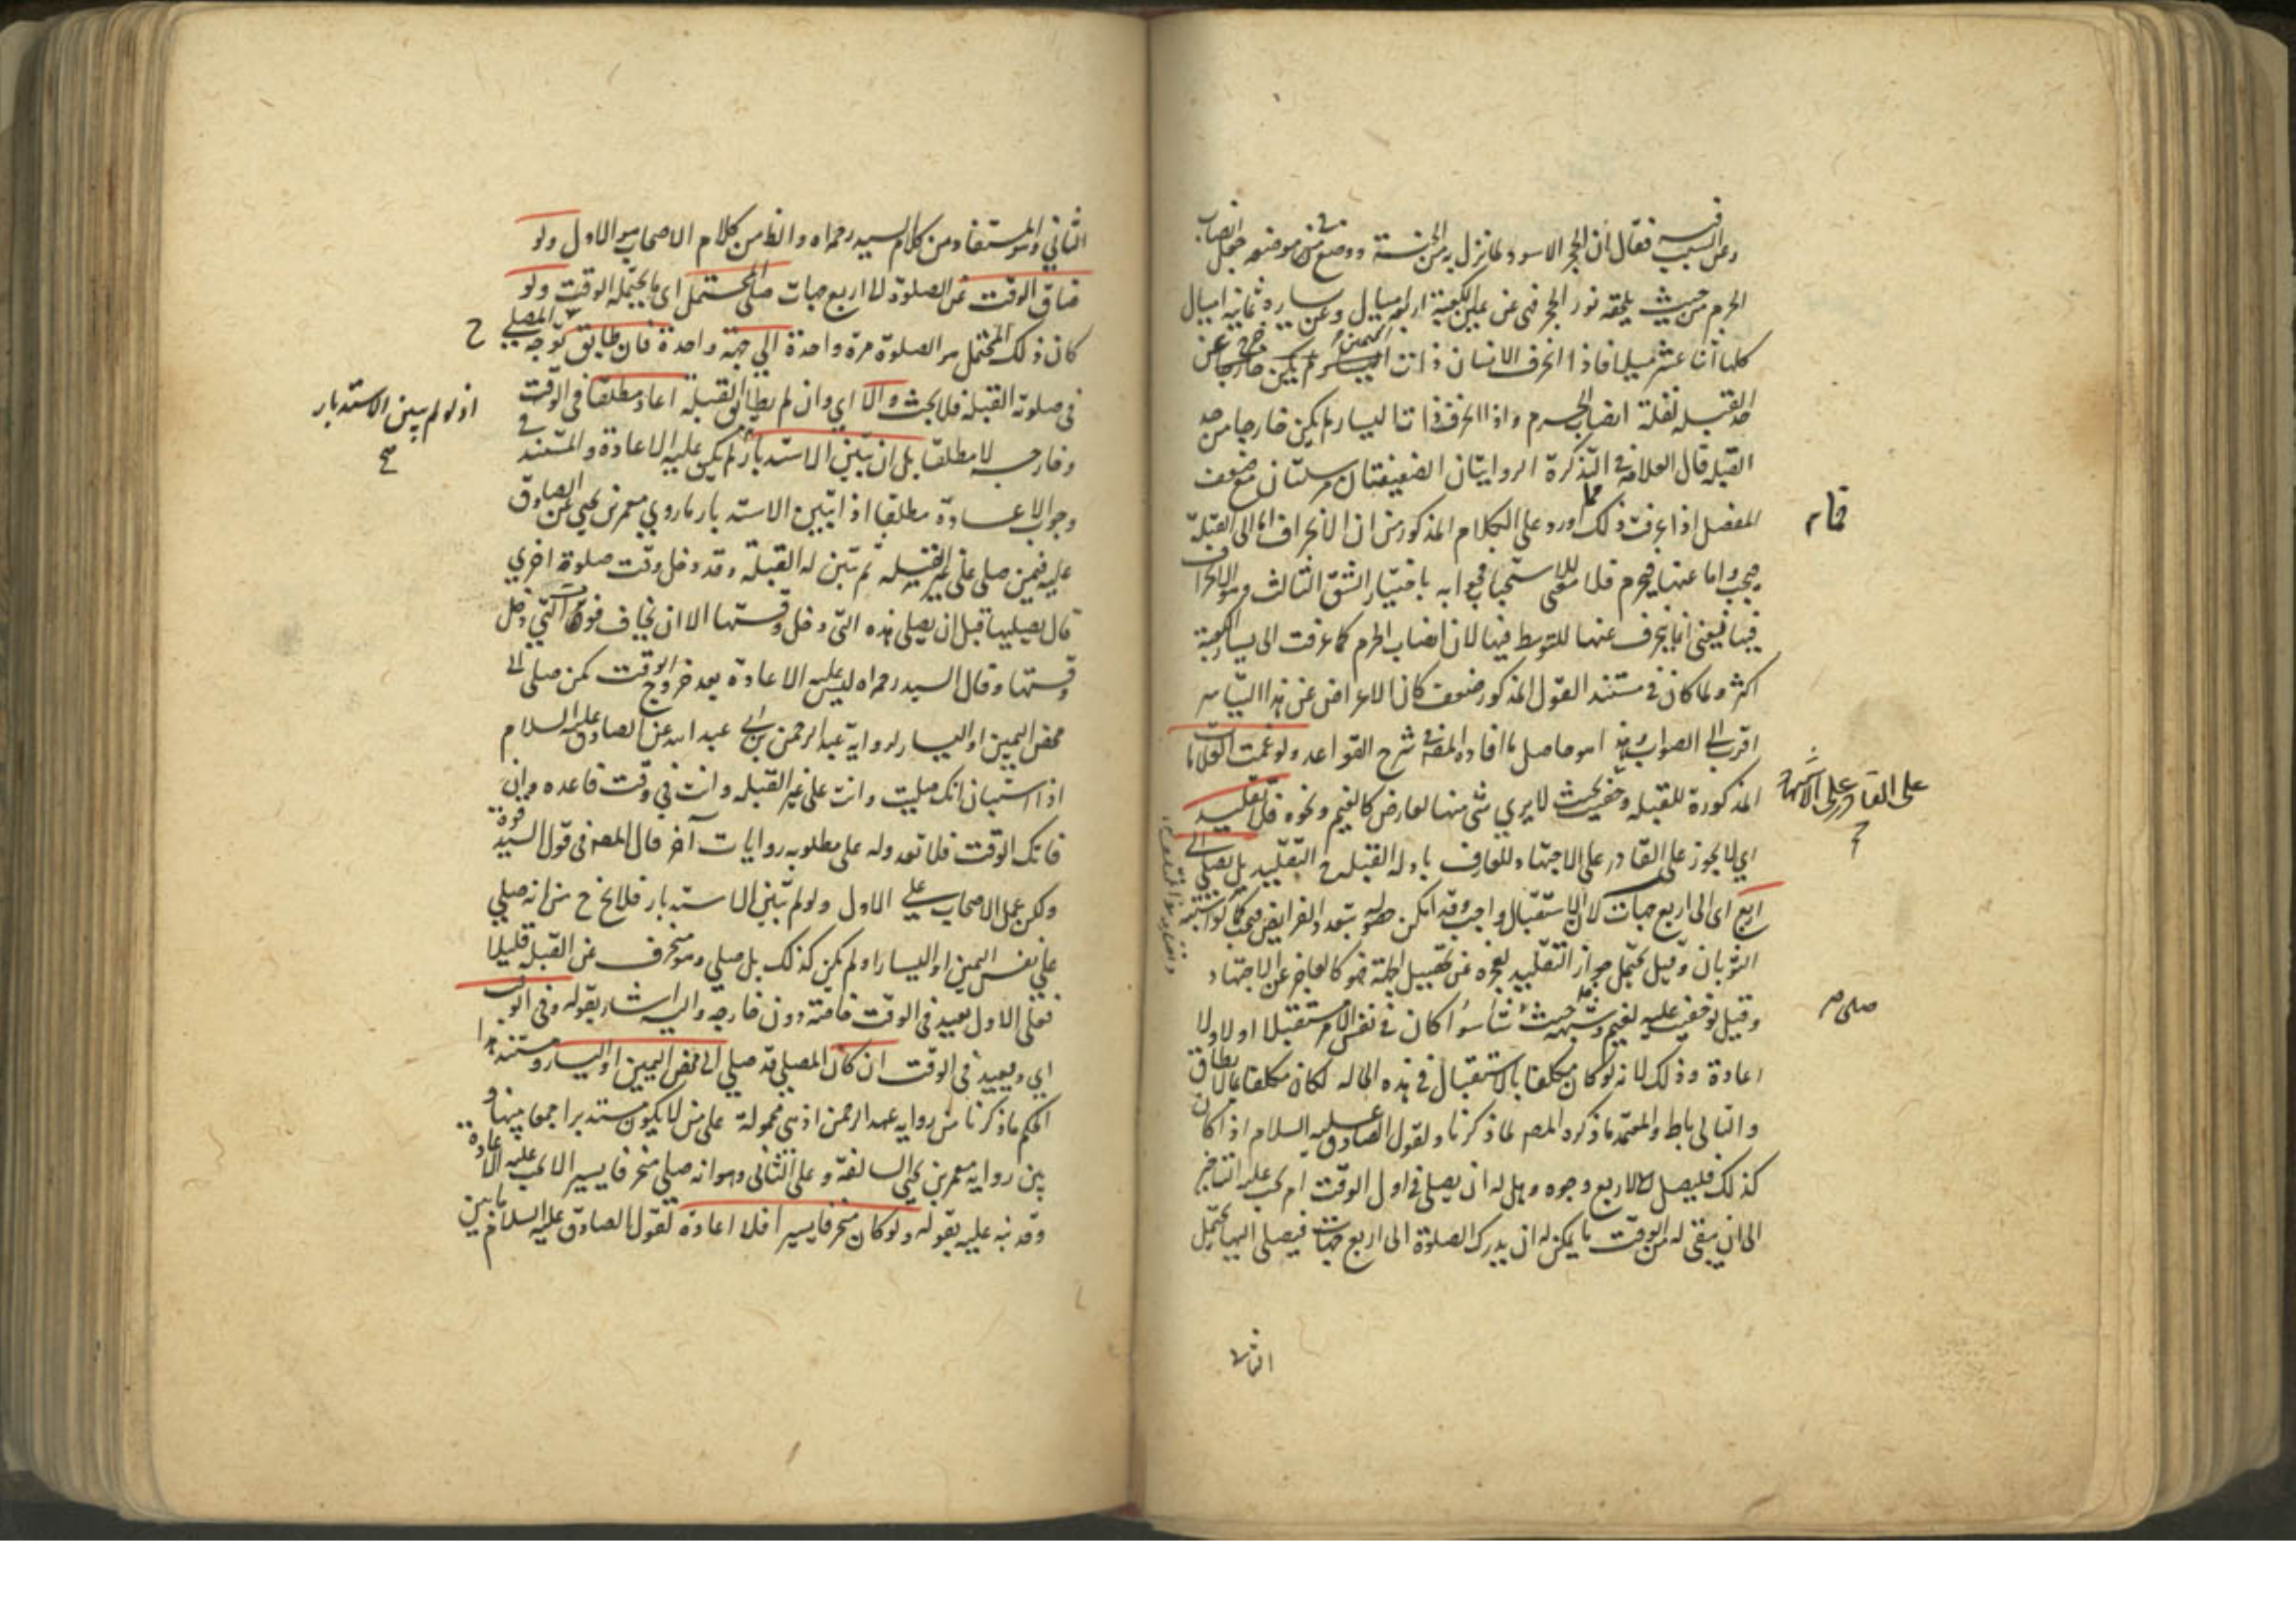 وعن السبب فيه فقال ان الحجر الاسود لما نزل به من الجنة ووضع في موضعه جعل انصاب
الحرم من حيث يلحقه نور الحجر فهي عن يمين الكعبة اربعة اميال وعن يساره ثمانية اميال
كلها اثنا عشر ميلا فاذا انحرف الانسان ذات اليمين خرج عن
حد القبلة لقلة انصاب الحرم واذا انحرف ذات اليسار لم يكن خارجا من حد
القبلة قال العلامة في التذكرة الروايتان الضعيفتان مرسلتان مع ضعف
المفضل اذا عرفت ذلك اورد على الكلام المذكور من ان الانحراف اما الى القبلة
فيجب واما عنها فيحرم فلا معنى للاستحباب فجوابه باختيار الشق الثالث وهو الانحراف
فيها فيعني انما ينحرف عنها للتوسط فيها لان انصاب الحرم كما عرفت الى يسار الكعبة
اكثر ولما كان في مستند القول المذكور ضعف كان الاعراض عن هذا التياسر
اقرب الى الصواب وهذا هو حاصل ما افاده المصه في شرح القواعد ولو غمت العلامات
المذكورة للقبلة وخفيت بحيث لا يرى شئ منها لعارض كالغيم ونحوه فلا تقليد
اي لا يجوز على القادر على الاجتهاد للعارف بادلة القبلة ح التقليد بل يصلي الى
اربع اى الى اربع جهات لان الاستقبال واجب وقد امكن حصوله بتعدد الفرايض فيجب كما لو اشتبه
الثوبان وقيل يحتمل جواز التقليد لعجزه عن تحصيل الجهة فهو كالعاجز عن الاجتهاد
وقيل لو خفيت عليه لغيم وشبهه حيث شاء سواء كان في نفس الامر مستقبلا او لا ولا
اعادة وذلك لانه لو كان مكلفا بالاستقبال في هذه الحالة لكان مكلفا بما لا يطاق
والتالي باطل والمعتمد ما ذكره المصه لما ذكرنا ولقول الصادق عليه السلام اذا كان
كذلك فليصل لاربع وجوه وهل له ان يصلي في اول الوقت ام يجب عليه التاخير
الى ان يبقى له من الوقت ما يمكنه ان يدرك الصلوة الى اربع جهات فيصلى اليها يحتمل
الثاني
تمام
على القادر على الاجتهاد
صلى
الثاني وهو المستفاد من كلام السيد رحمه اه والظ من كلام الاصحاب هو الاول ولو
ضاق الوقت عن الصلوة الى اربع جهات صلى المحتمل اى ما يحتمله الوقت ولو
كان ذلك المحتمل هو الصلوة مرة واحدة الى جهة واحدة فان طابق توجه المصلي
في صلوته القبلة فلا بحث والا اي وان لم يطابق القبلة اعاد مطلقا في الوقت
وخارجه لا مطلقا بل ان تبين الاستدبار لم يكن عليه الاعادة والمستند في
وجوب الاعادة مطلقا اذا تبين الاستدبار ما روي معمر بن يحيى عن الصادق
عليه فيمن صلى على غير القبلة ثم تبين له القبلة وقد دخل وقت صلوة اخري
قال يصليها قبل ان يصلي هذه التي دخل وقتها الا ان يخاف فوت التي دخل
وقتها وقال السيد رحمه اه ليس عليه الاعادة بعد خروج الوقت كمن صلى الى
محض اليمين او اليسار لرواية عبد الرحمن بن ابي عبد الله عن الصادق عليه السلام
اذا استبان انك صليت وانت على غير القبلة وانت في وقت فاعده وان
فاتك الوقت فلا تعد وله على مطلوبه روايات آخر قال المصه في قول السيد قوة
ولكن عمل الاصحاب على الاول ولو لم تبين الاستدبار فلا يخ ح من انه صلى
على نفس اليمين او اليسار او لم يكن كذلك بل صلى ومنحرف عن القبلة قليلا
فعلى الاول يعيد في الوقت خاصة دون خارجه واليه اشار بقوله وفي الوقت
اي ويعيد في الوقت ان كان المصلي قد صلى الى محض اليمين او اليسار ومستند هذا
الحكم ما ذكرنا من رواية عبد الرحمن اذ هي محمولة على من لا يكون مستدبرا جمعا بينها و
بين رواية معمر بن يحيى السالفة وعلى الثاني وهو انه صلى منحرفا يسيرا لا يجب عليه الاعادة
وقد نبه عليه بقوله ولو كان منحرفا يسيرا فلا اعادة لقول الصادق عليه السلام ما بين
اذ لو لم يبين الاستدبار
صح